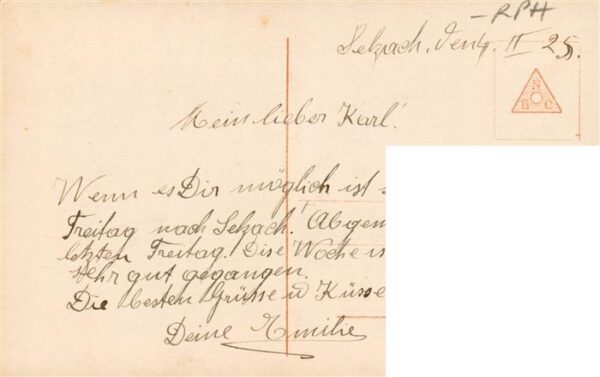 -RPH
Selzach, den 4. II 25.
N
B C
Mein lieber Karl!
Wenn es Dir möglich ist
Freitag nach Selzach! Abgem
letzten Freitag. Dise Woche is
sehr gut gegangen.
Die besten Grüsse u Küsse
Deine Emilie